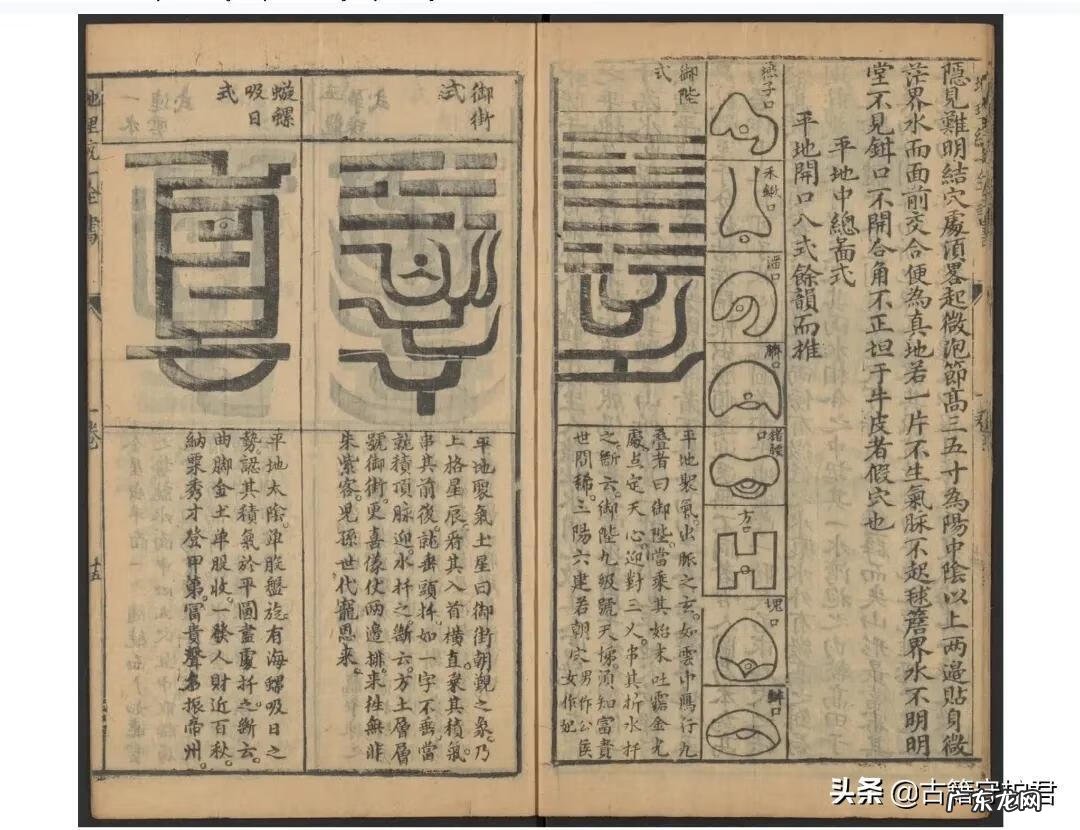 隱見難明結穴處須畧起微泡節高三五寸為陽中陰以上兩邉貼身微
茫界水而面前交合便為真地若一片不生氣脉不起毬簷界水不明明
堂不見鉗口不開合角不正坦于牛皮者假穴也
平地中總啚式
平地開口八式餘韻而推
燕子口
禾鍬口
臍口
猪腰口
方口
御陛式
平地聚氣出脈之玄。如雲中鴈行九
疊者曰御陛。當乘其始末吐露金尤
處点定天心。迎對三义。串其折水扦
之。斷云。御陛九級號天梯。須知富貴
世間稀。三陽六建若朝穴男作公侯
女作妃
御街式
平地聚氣土星曰御街朝觀之象。乃
上格星辰。看其入首橫直。乘其積氣。
串其前後。就垂頭扦。如一字不垂。當
就積頂脉迎。水扦之。斷云。方土層層
號御街。更喜儀仗兩邉排。来徃無非
朱紫客。児孫世代寵恩来。
螺吸日式
平地太陰。単股盤旋。有海螺吸日之
勢。認其積氣。於平圖盡處扦之。斷云。
曲脚金土単股收。一發人財近百秋。
納粟秀才登甲第。富貴聲名振帝州。
地理
全書
一卷
十五
头条 @古籍守护君
广东龙网